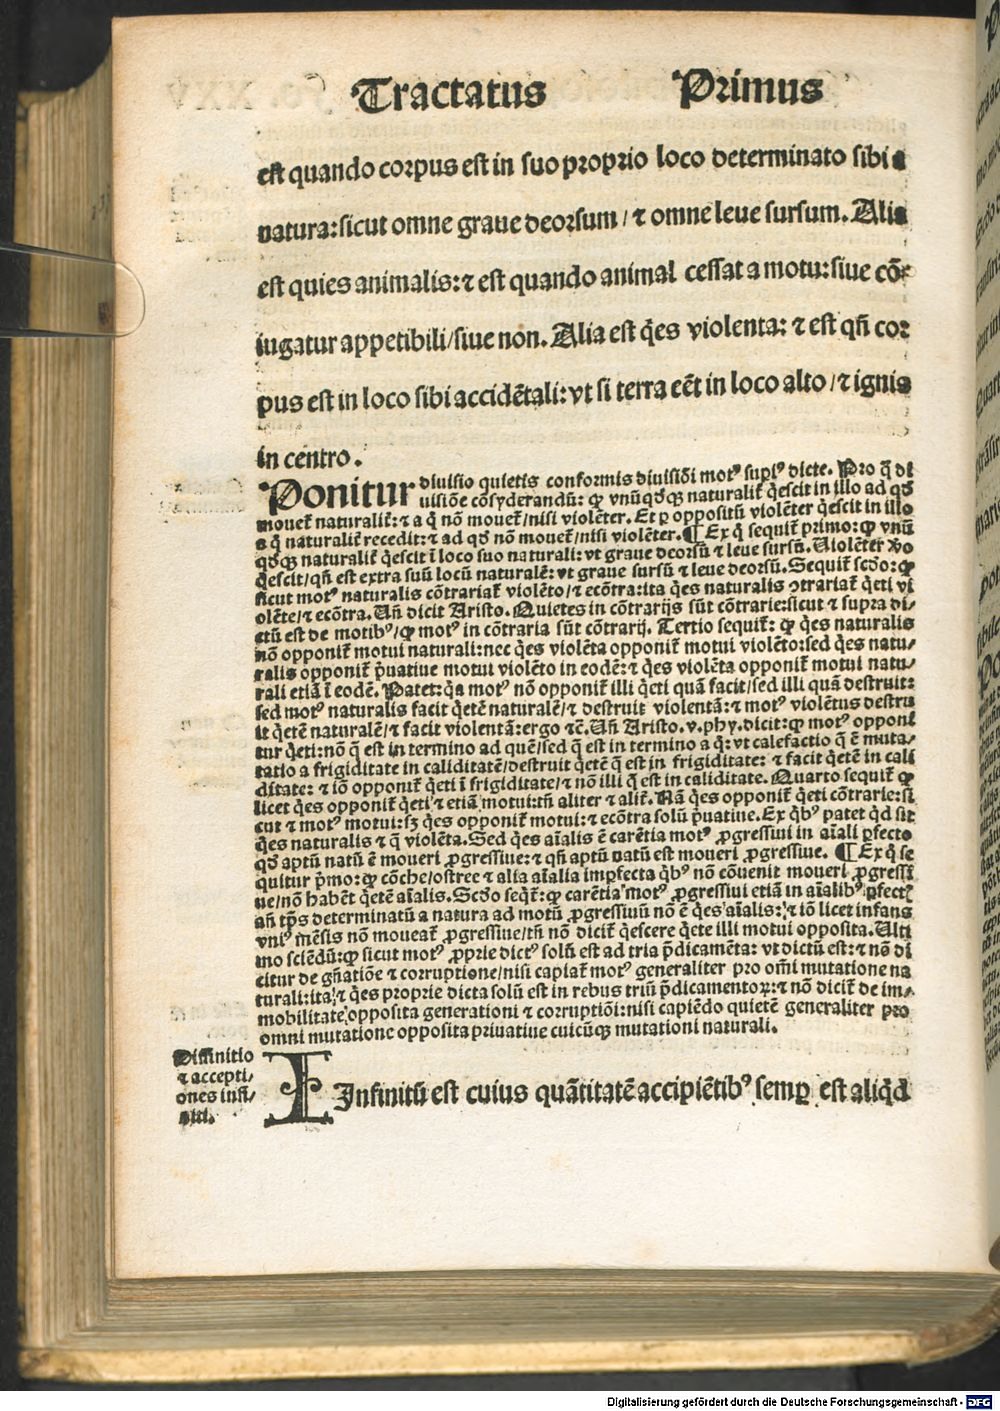 Tractatus Primus
est quando corpus est in suo proprio loco determinato sibi a
natura: sicut omne graue deorsum / ⁊ omne leue sursum. Alia
est quies animalis: ⁊ est quando animal cessat a motu: siue cõ⸗
iugatur appetibili / siue non. Alia est q̃es violenta: ⁊ est qñ cor
pus est in loco sibi accidẽtali: vt si terra eẽt in loco alto / ⁊ ignis
in centro.
Ponitur diuisio quietis conformis diuisiõi motꝰ supiꝰ dicte. Pro q̃ di
uisiõe cõsyderandũ: ꝙ vnũqd̃qꝫ naturalit̃ q̃escit in illo ad qd̃
mouet̃ naturalit̃: ⁊ a q̃ nõ mouet̃ / nisi violẽter. Et ꝑ oppositũ violẽter q̃escit in illo
a q̃ naturalit̃ recedit: ⁊ ad qd̃ nõ mouet̃ / nisi violẽter. ¶ Ex q̃ sequit̃ primo: ꝙ vnũ
qd̃qꝫ naturalit̃ q̃escit ĩ loco suo naturali: vt graue deorsũ ⁊ leue sursũ. Violẽter v̾o
q̃escit / qñ est extra suũ locũ naturalẽ: vt graue sursũ ⁊ leue deorsũ. Sequit̃ scd̃o: ꝙ
sicut motꝰ naturalis cõtrariat̃ violẽto / ⁊ ecõtra: ita q̃es naturalis ꝯtrariat̃ q̃eti vi
olẽte / ⁊ ecõtra. Uñ dicit Aristo. Quietes in cõtrarijs sũt cõtrarie: sicut ⁊ supra di⸗
ctũ est de motibꝰ / ꝙ motꝰ in cõtraria sũt cõtrarij. Tertio sequit̃: ꝙ q̃es naturalis
nõ opponit̃ motui naturali: nec q̃es violẽta opponit̃ motui violẽto: sed q̃es natu⸗
ralis opponit̃ p̃uatiue motui violẽto in eodẽ: ⁊ q̃es violẽta opponit̃ motui natu⸗
rali etiã ĩ eodẽ. Patet: q̃a motꝰ nõ opponit̃ illi q̃eti quã facit / sed illi quã destruit:
sed motꝰ naturalis facit q̃etẽ naturalẽ / ⁊ destruit violentã: ⁊ motꝰ violẽtus destru
it q̃etẽ naturalẽ / ⁊ facit violentã: ergo ⁊c̃. Uñ Aristo. v. phy. dicit: ꝙ motꝰ opponi
tur q̃eti: nõ q̃ est in termino ad quẽ / sed q̃ est in termino a q̃: vt calefactio q̃ ẽ muta⸗
tatio a frigiditate in caliditatẽ / destruit q̃etẽ q̃ est in frigiditate: ⁊ facit q̃etẽ in cali
ditate: ⁊ iõ opponit̃ q̃eti ĩ frigiditate / ⁊ nõ illi q̃ est in caliditate. Quarto sequit̃ ꝙ
licet q̃es opponit̃ q̃eti / ⁊ etiã motui: tñ aliter ⁊ alit̃. Nã q̃es opponit̃ q̃eti cõtrarie: si
cut ⁊ motꝰ motui: sꝫ q̃es opponit̃ motui: ⁊ ecõtra solũ p̃uatiue. Ex q̃bꝰ patet q̃d sit
q̃es naturalis ⁊ q̃ violẽta. Sed q̃es aĩalis ẽ carẽtia motꝰ ꝓgressiui in aĩali ꝑfecto
qd̃ aptũ natũ ẽ moueri ꝓgressiue: ⁊ qñ aptũ natũ est moueri ꝓgressiue. ¶ Ex q̃ se
quitur p̃mo: ꝙ cõche / ostree ⁊ alia aĩalia imꝑfecta q̃bꝰ nõ cõuenit moueri ꝓgressi
ue / nõ habẽt q̃etẽ aĩalis. Scd̃o seq̃t̃: ꝙ carẽtia motꝰ ꝓgressiui etiã in aĩalibꝰ ꝑfectꝭ
añ tp̃s determinatũ a natura ad motũ ꝓgressiuũ nõ ẽ q̃es aĩalis: ⁊ iõ licet infans
vniꝰ mẽsis nõ moueat̃ ꝓgressiue / tñ nõ dicit̃ q̃escere q̃ete illi motui opposita. Ulti
mo sciẽdũ: ꝙ sicut motꝰ ꝓprie dictꝰ solũ est ad tria p̃dicamẽta: vt dictũ est: ⁊ nõ di
citur de gñatiõe ⁊ corruptione / nisi capiat̃ motꝰ generaliter pro oĩ mutatione na
turali: ita ⁊ q̃es proprie dicta solũ est in rebus triũ p̃dicamentoꝝ: ⁊ nõ dicit̃ de im⸗
mobilitate opposita generationi ⁊ corruptiõi: nisi capiẽdo quietẽ generaliter pro
omni mutatione opposita priuatiue cuicũqꝫ mutationi naturali.
Diffinitio
⁊ accepti⸗
ones infi⸗
niti.
IInfinitũ est cuius quãtitatẽ accipiẽtibꝰ semꝑ est aliq̃d
Digitalisierung gefördert durch die Deutsche Forschungsgemeinschaft - DFG